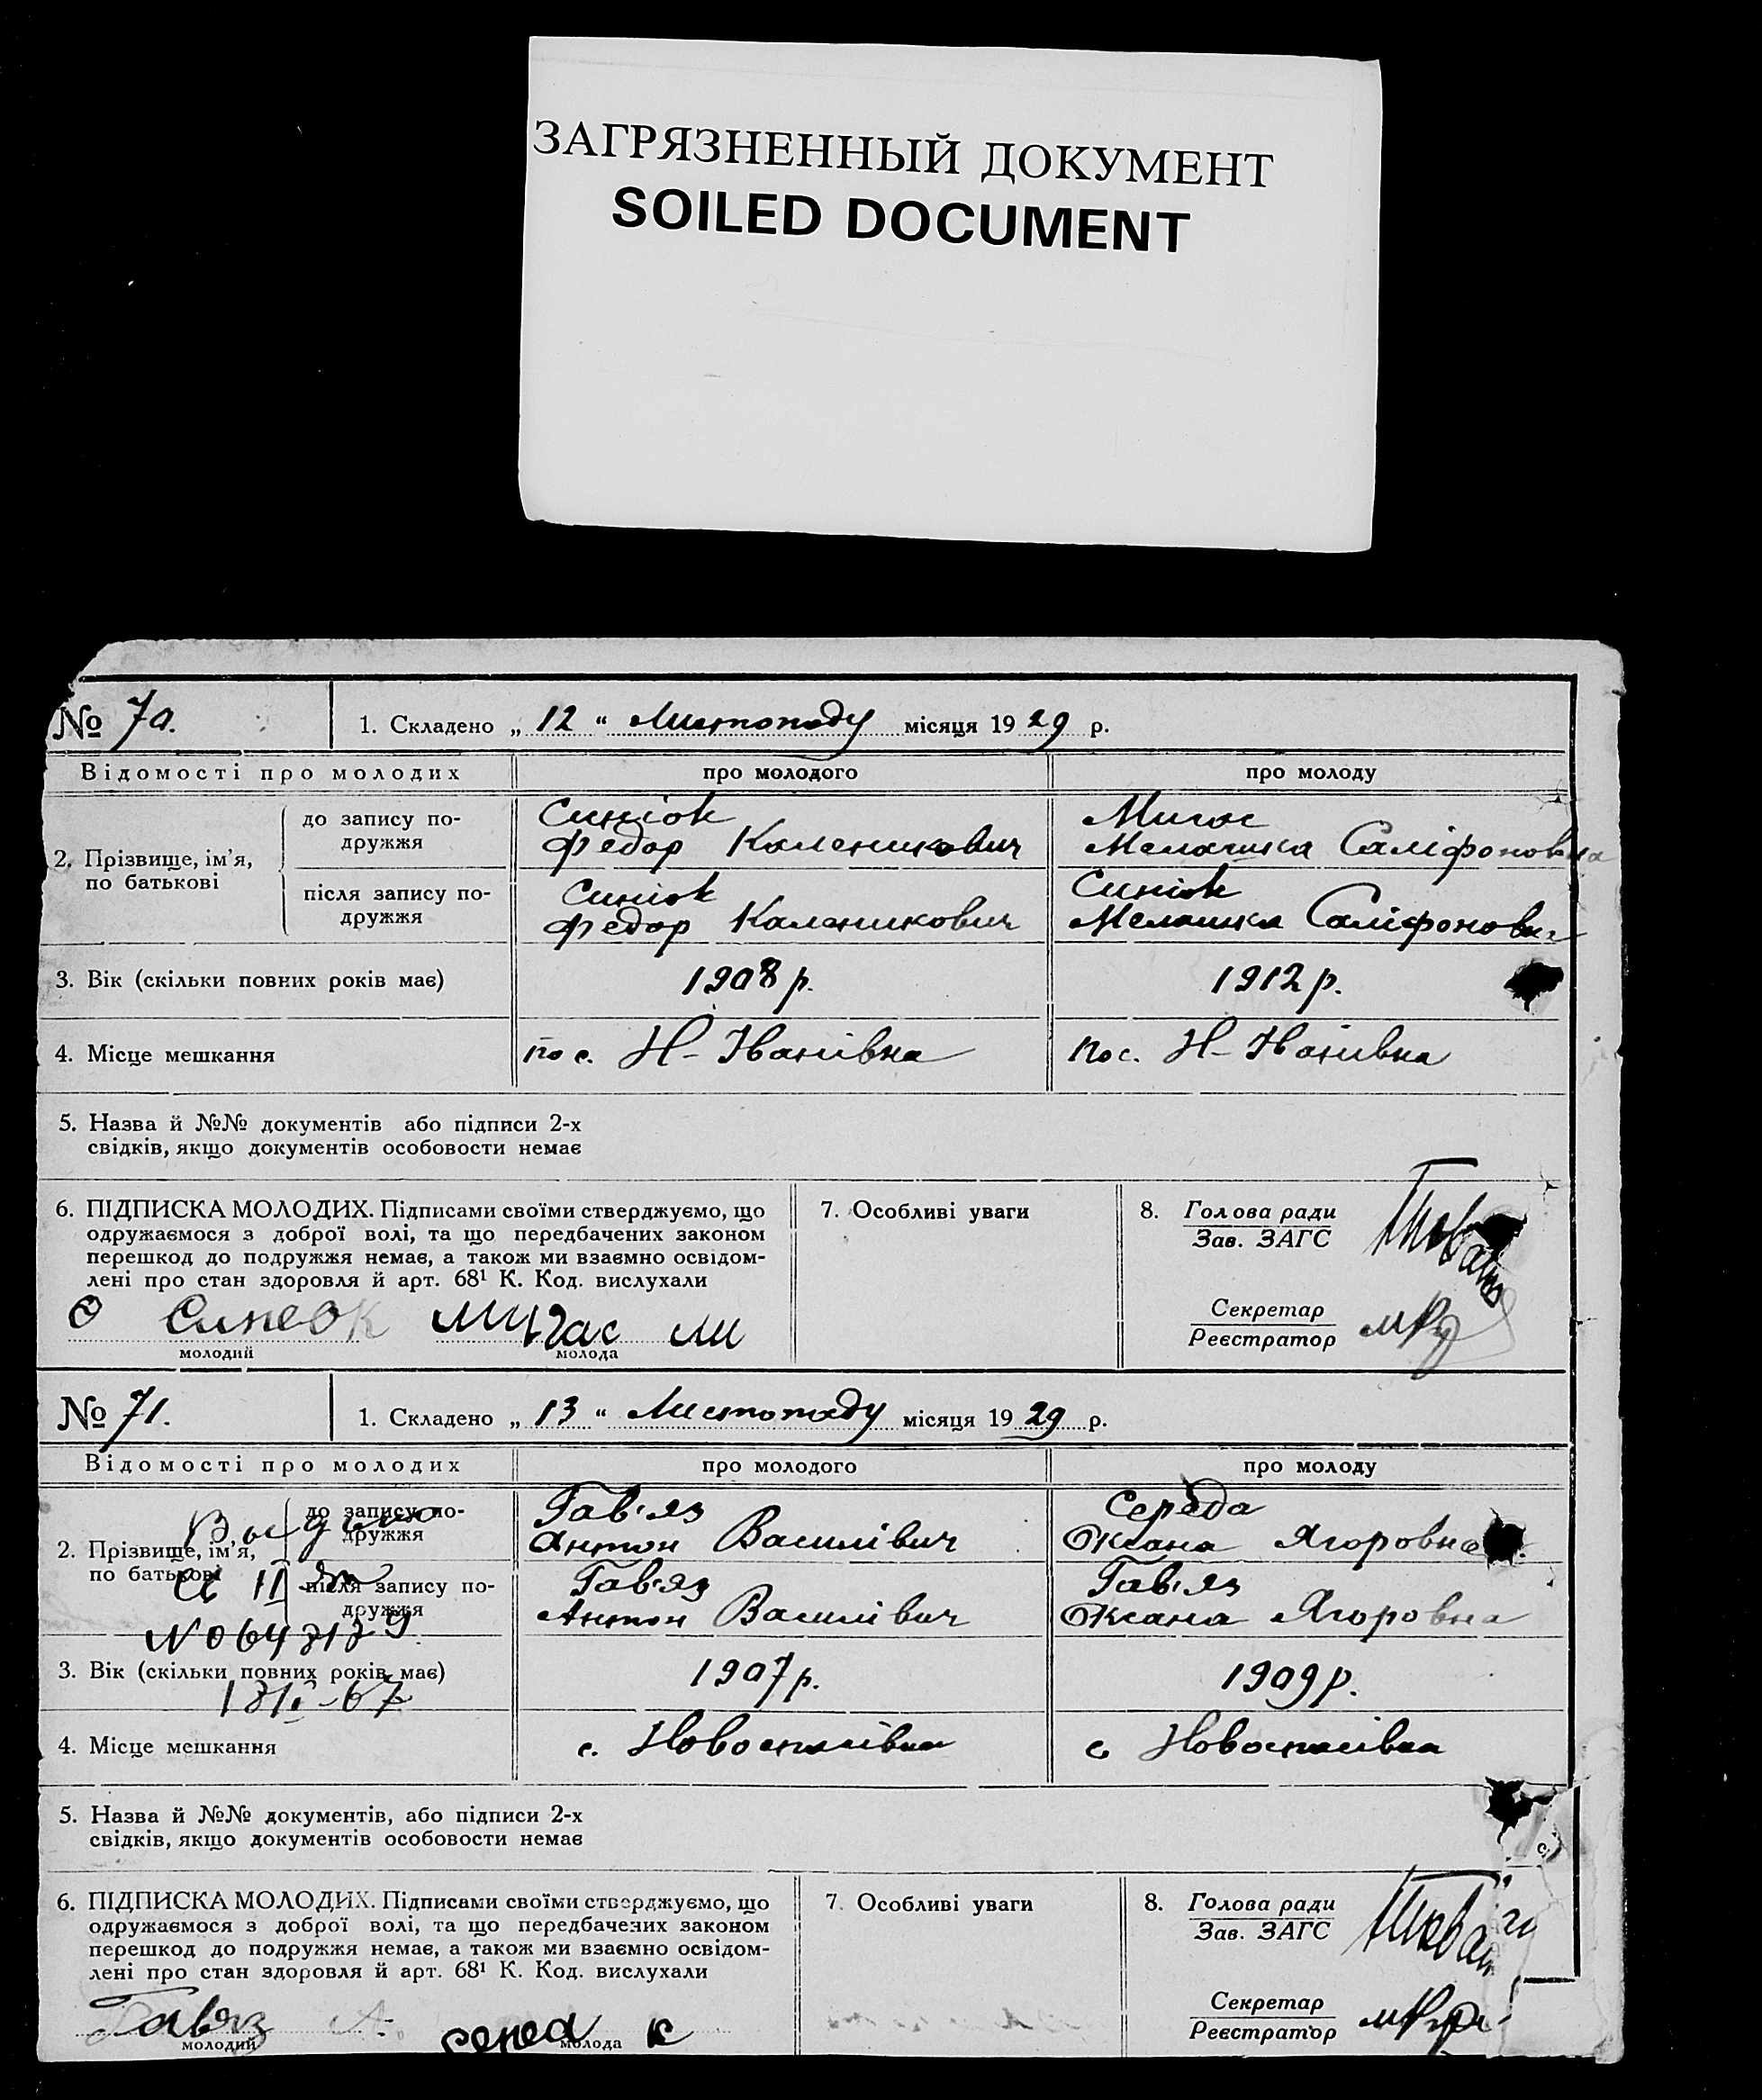 ЗАГРЯЗНЕННЫЙ ДОКУМЕНТ
SOILED DOCUMENT
№ 70. 1. Складено „ 12 “ Листопаду місяця 1929 р.
Відомості про молодих про молодого про молоду
2. Прізвище, ім’я, по батькові
до запису по-
дружжя
Синіок
Федор Каленикович
Мигас
Мелашка Саліфоновна
після запису по-
дружжя
Синіок
Федор Каленикович
Синіок
Мелашка Саліфоновн
3. Вік (скільки повних років має) 1908 р. 1912 р.
4. Місце мешкання пос. Н-Іванівка пос. Н-Іванівка
5. Назва й №№ документів або підписи 2-х
свідків, якщо документів особовости немає
6. ПІДПИСКА МОЛОДИХ. Підписами своїми стверджуємо, що
одружаємося з доброї волі, та що передбачених законом
перешкод до подружжя немає, а також ми взаємно освідом-
лені про стан здоровля й арт. 68¹ К. Код. вислухали
синеок мигас ми
молодий молода
7. Особливі уваги
8. Голова ради
Зав. ЗАГС
Секретар
Реєстратор
№ 71. 1. Складено „ 13 “ Листопаду місяця 1929 р.
Відомості про молодих про молодого про молоду
2. Прізвище, ім’я,
по батькові
до запису по-
дружжя
Гав'яз
Антон Василівич
Середа
Оксана Ягоровна
після запису по-
дружжя
Гав'яз
Антон Василівич
Гав'яз
Оксана Ягоровна
3. Вік (скільки повних років має) 1907 р. 1909 р.
4. Місце мешкання с. Новоспасівка с. Новоспасівка
5. Назва й №№ документів, або підписи 2-х
свідків, якщо документів особовости немає
6. ПІДПИСКА МОЛОДИХ. Підписами своїми стверджуємо, що
одружаємося з доброї волі, та що передбачених законом
перешкод до подружжя немає, а також ми взаємно освідом-
лені про стан здоровля й арт. 68¹ К. Код. вислухали
Гавяз А.
молодий молода
7. Особливі уваги
8. Голова ради
Зав. ЗАГС
Секретар
Реєстратор